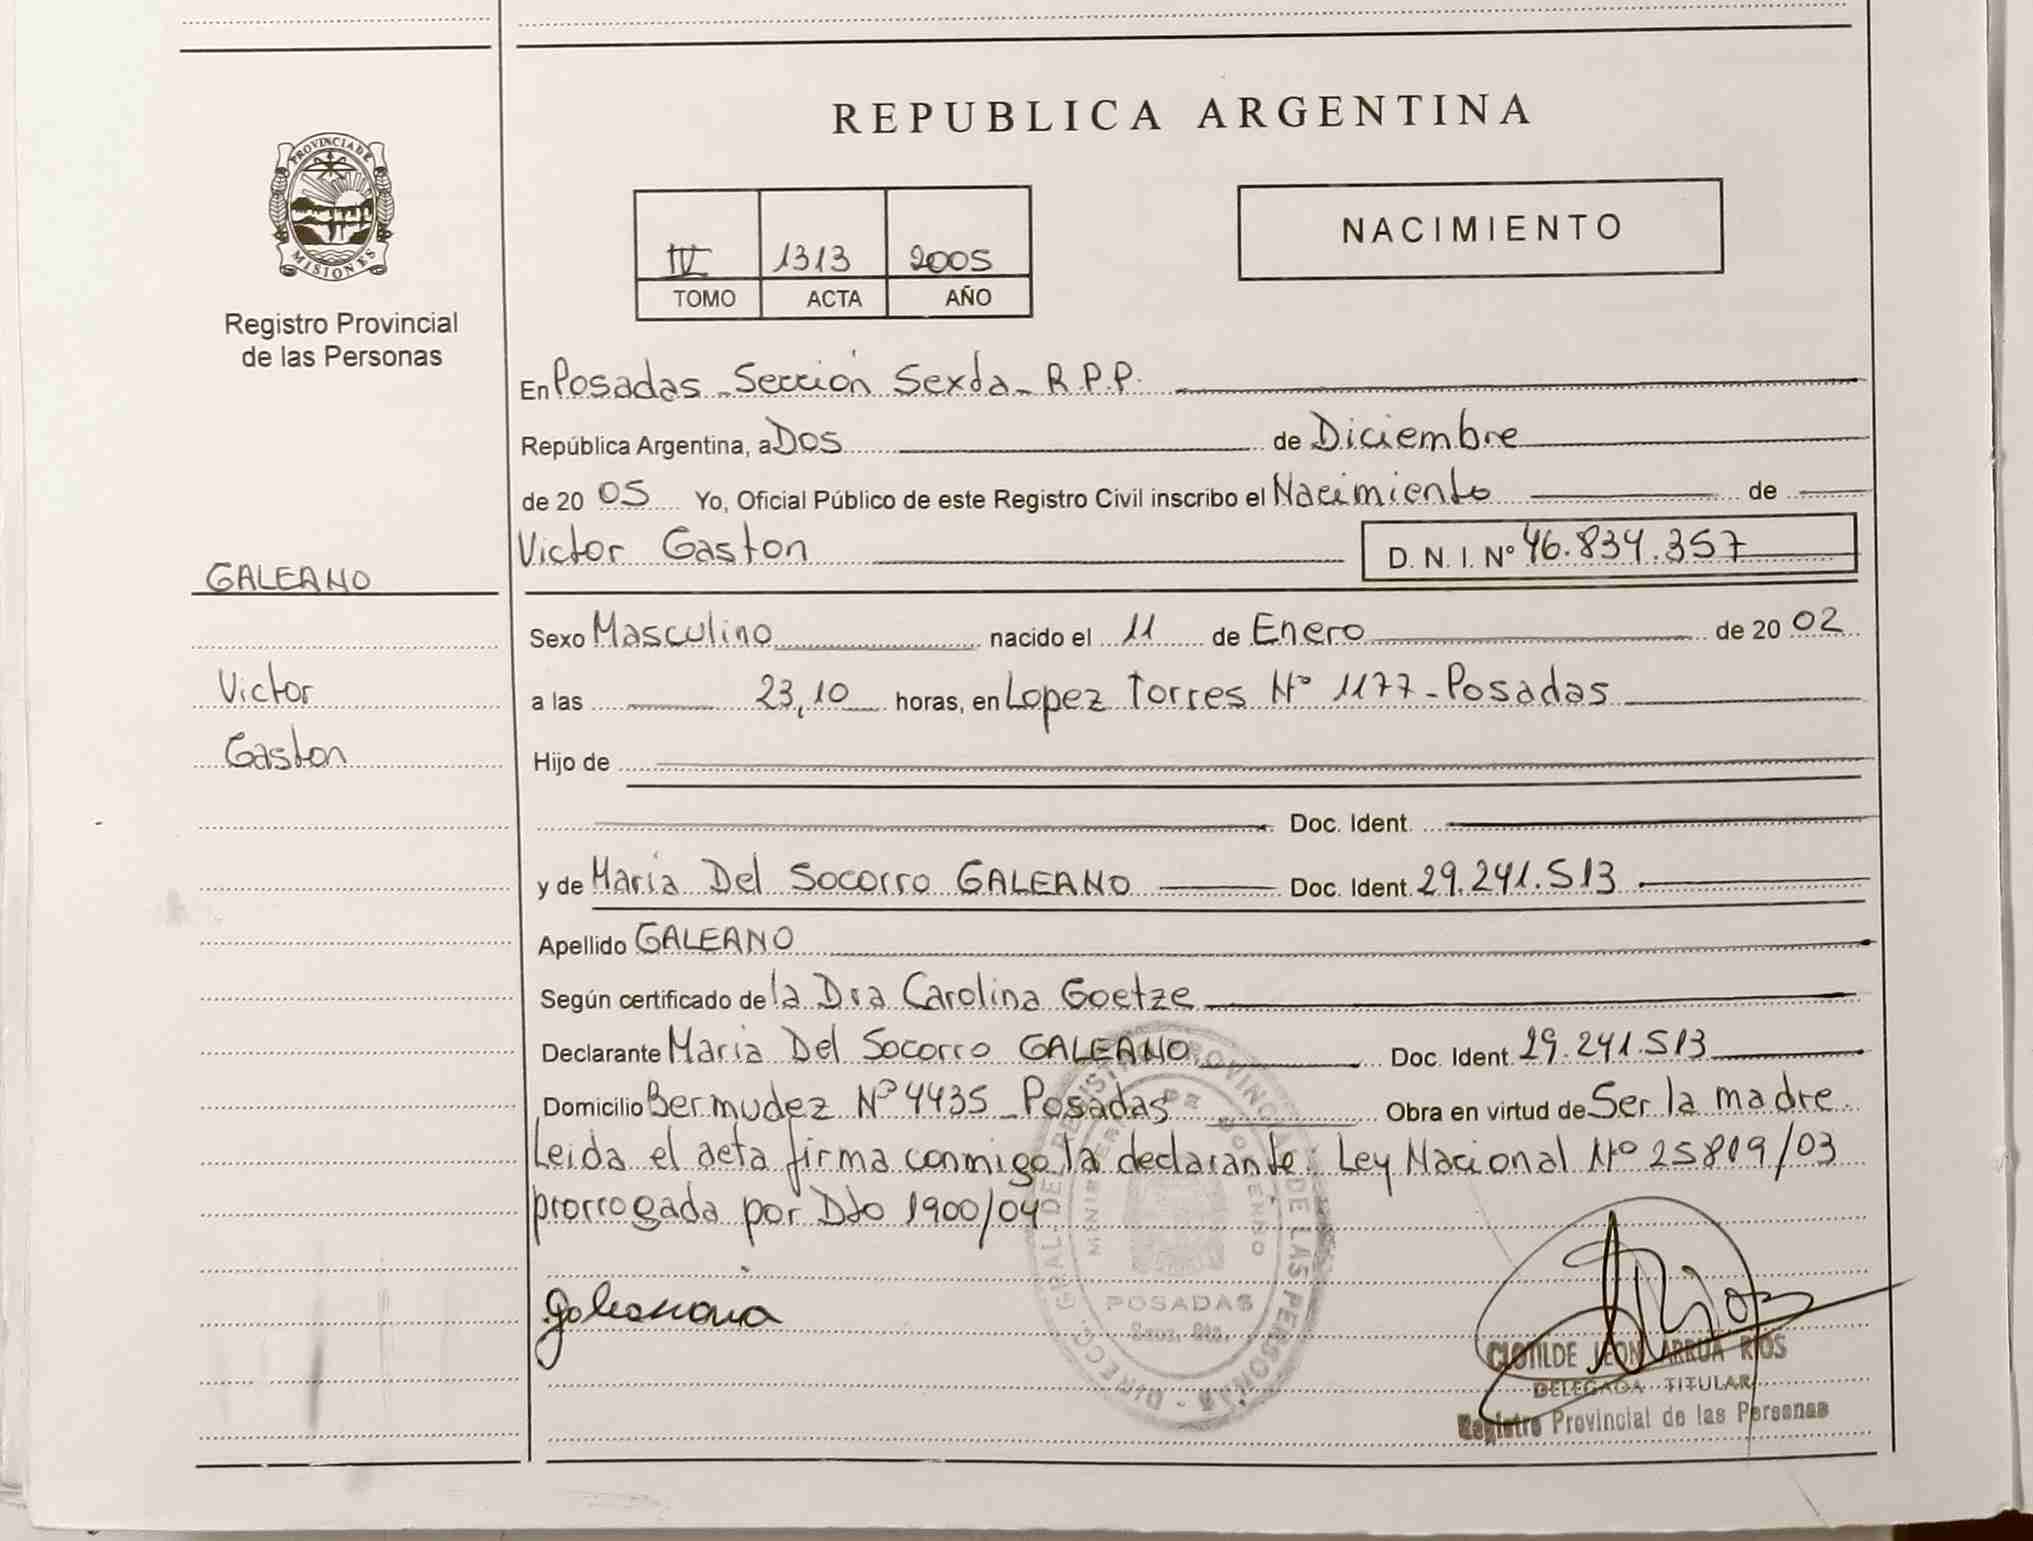 PROVINCIA DE
MISIONES
Registro Provincial
de las Personas
GALEANO
Victor
Gaston
REPUBLICA ARGENTINA
NACIMIENTO
IV 1313 2005
TOMO ACTA AÑO
En Posadas - Sección Sexta - R.P.P.
República Argentina, a Dos de Diciembre
de 20 05 Yo, Oficial Público de este Registro Civil inscribo el Nacimiento de
Victor Gaston D. N. I. Nº 46.834.357
Sexo Masculino nacido el 11 de Enero de 20 02
a las 23,10 horas, en Lopez Torres Nº 1177 - Posadas
Hijo de
Doc. Ident.
y de Maria Del Socorro GALEANO Doc. Ident. 29.241.513
Apellido GALEANO
Según certificado de la Dra Carolina Goetze
Declarante Maria Del Socorro GALEANO Doc. Ident. 29.241.513
Domicilio Bermudez Nº 4435 - Posadas Obra en virtud de Ser la madre.
Leida el acta firma conmigo la declarante: Ley Nacional Nº 25819/03
prorrogada por Dto 1900/04
DIRECC. GRAL. DEL REGISTRO PROVINCIAL DE LAS PERSONAS
MINISTERIO DE GOBIERNO
POSADAS
Rios
CLOTILDE LEON ARRUA RIOS
DELEGADA TITULAR
Registro Provincial de las Personas